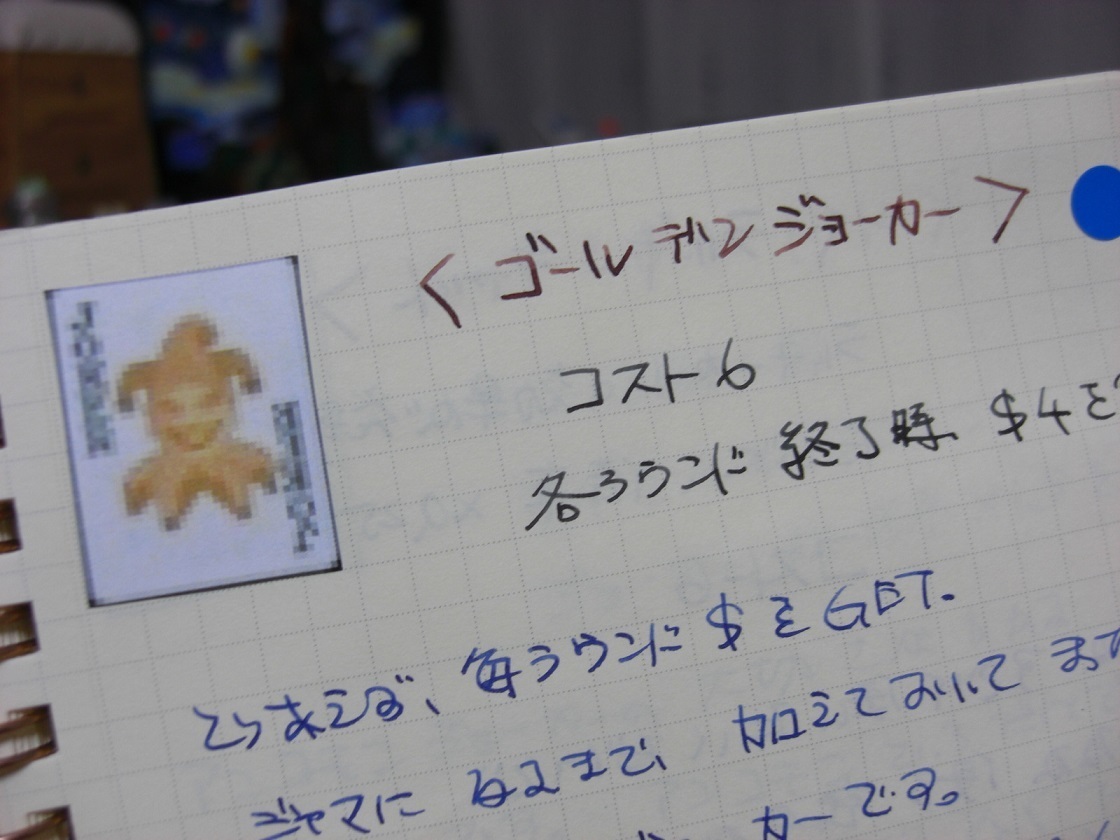 <ゴールデンジョーカー>
コスト6
各ラウンド終了時 $4を
とりあえず、毎ラウンド $をGET.
ジャマになるまで、加えておいて
カーです。